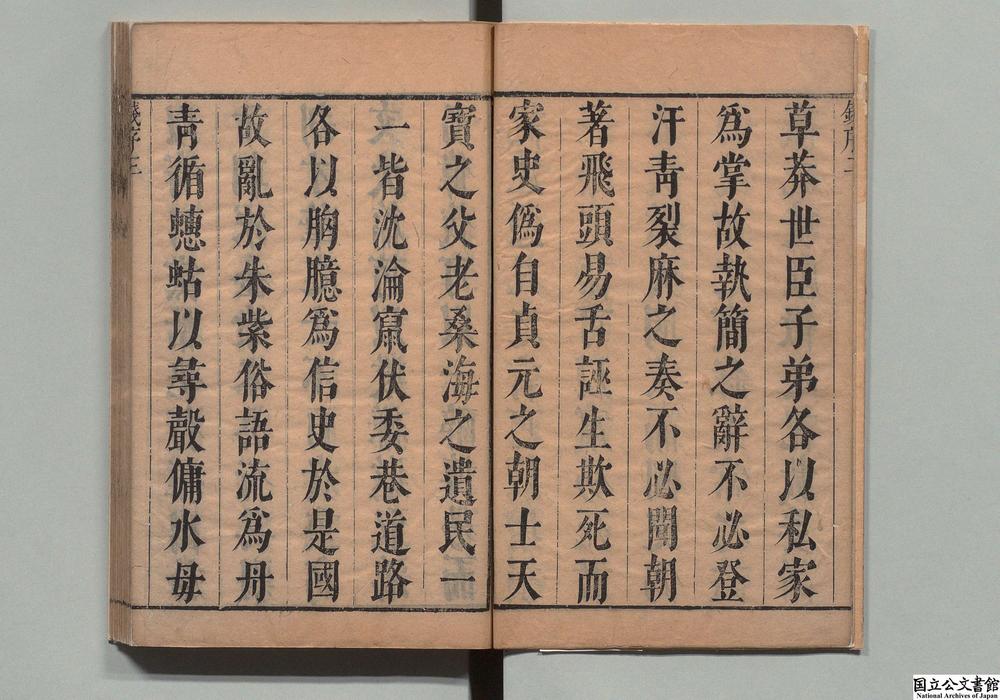 草莽世臣子弟各以私家
爲掌故執簡之辭不必登
汗靑裂麻之奏不必聞朝
著飛頭易舌誣生欺死而
家史僞自貞元之朝士天
寶之父老桑海之遺民一
一皆沈淪竄伏委巷道路
各以胸臆爲信史於是國
故亂於朱紫俗語流爲丹
靑循蟪蛄以尋聲傭水母
国立公文書館
National Archives of Japan